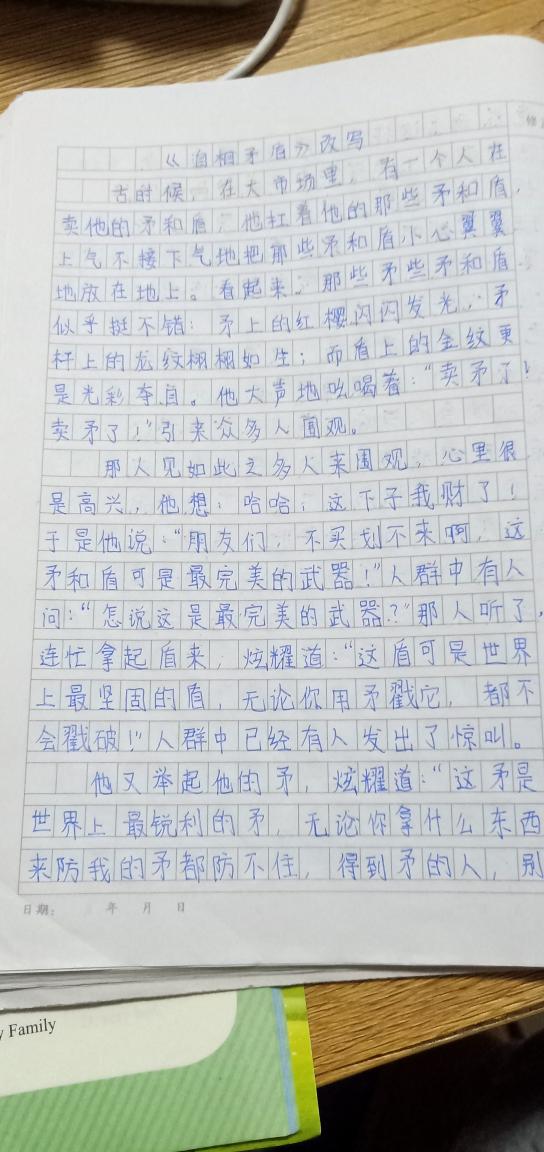 《自相矛盾》改写
古时候，在大市场里，有一个人在
卖他的矛和盾，他扛着他的那些矛和盾，
上气不接下气地把那些矛和盾小心翼翼
地放在地上。看起来，那些矛些矛和盾
似乎挺不错：矛上的红樱闪闪发光，矛
杆上的龙纹栩栩如生；而盾上的金纹更
是光彩夺目。他大声地吆喝着：“卖矛了！
卖矛了！”引来众多人围观。
那人见如此之多人来围观，心里很
是高兴，他想：哈哈；这下子我财了！
于是他说：“朋友们，不买划不来啊，这
矛和盾可是最完美的武器！”人群中有人
问：“怎说这是最完美的武器？”那人听了，
连忙拿起盾来，炫耀道：“这盾可是世界
上最坚固的盾，无论你用矛戳它，都不
会戳破！”人群中已经有人发出了惊叫。
他又举起他的矛，炫耀道：“这矛是
世界上最锐利的矛，无论你拿什么东西
来防我的矛都防不住，得到矛的人，别
日期： 年 月 日
y Family